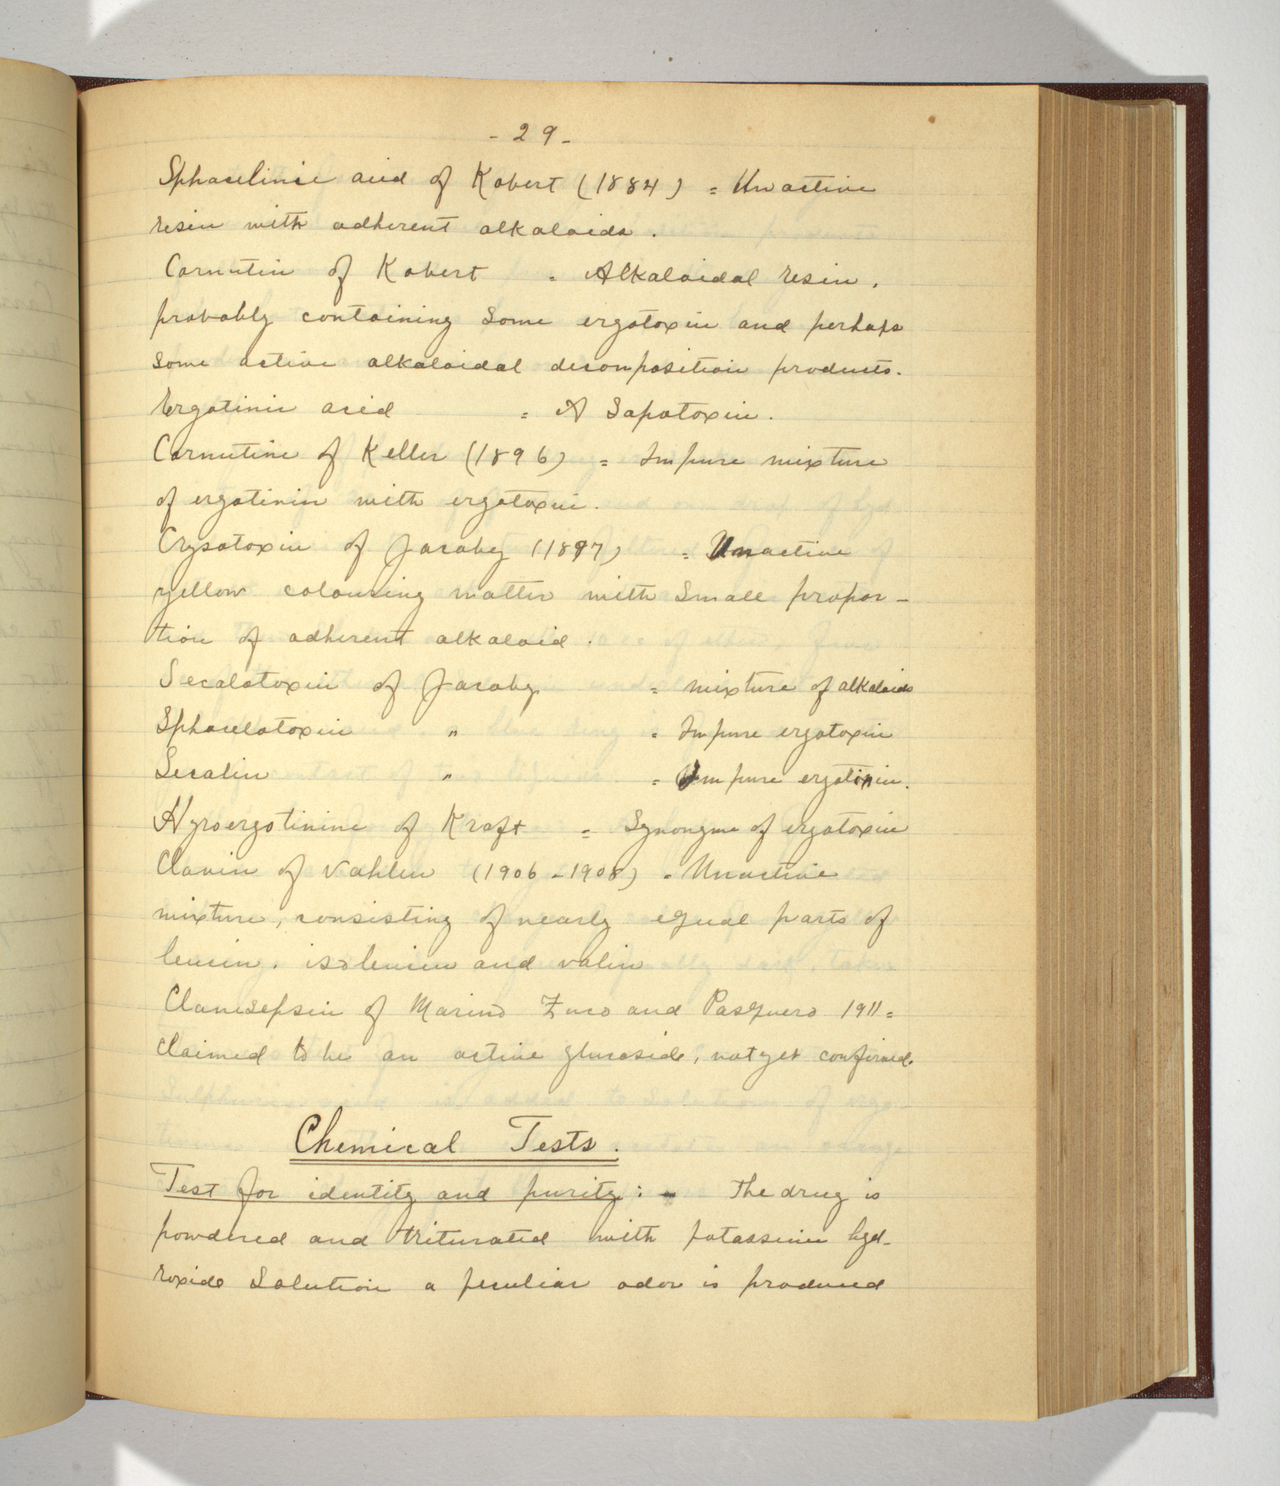 - 29 -
Sphacelinic acid of Kobert (1884) = Unactive
resin with adherent alkaloids.
Cornutin of Kobert = Alkaloidal resin,
probably containing some ergotoxin and perhaps
some active alkaloidal decomposition products.
Ergotinic acid = A Sapotoxin.
Cornutine of Keller (1896) = Impure mixture
of ergotinin with ergotoxin.
Crysotoxin of Jacoby (1897) = Unactive
yellow colouring matter with small propor-
tion of adherent alkaloid.
Secalotoxin of Jacoby = mixture of alkaloids
Sphacelotoxin " = Impure ergotoxin
Secalin " = Impure ergotinin.
Hyroergotinine of Kraft = Synonyme of ergotoxin
Clavin of Vahlen (1906-1908) = Unactive
mixture, consisting of nearly equal parts of
leucin, isoleucin and valin
Clavisepsin of Marino Zuco and Pasquero 1911 =
Claimed to be an active glucoside, not yet confirmed
Chemical Tests.
Test for identity and purity: - The drug is
powdered and triturated with potassium hyd-
roxide solution a peculiar odor is produced